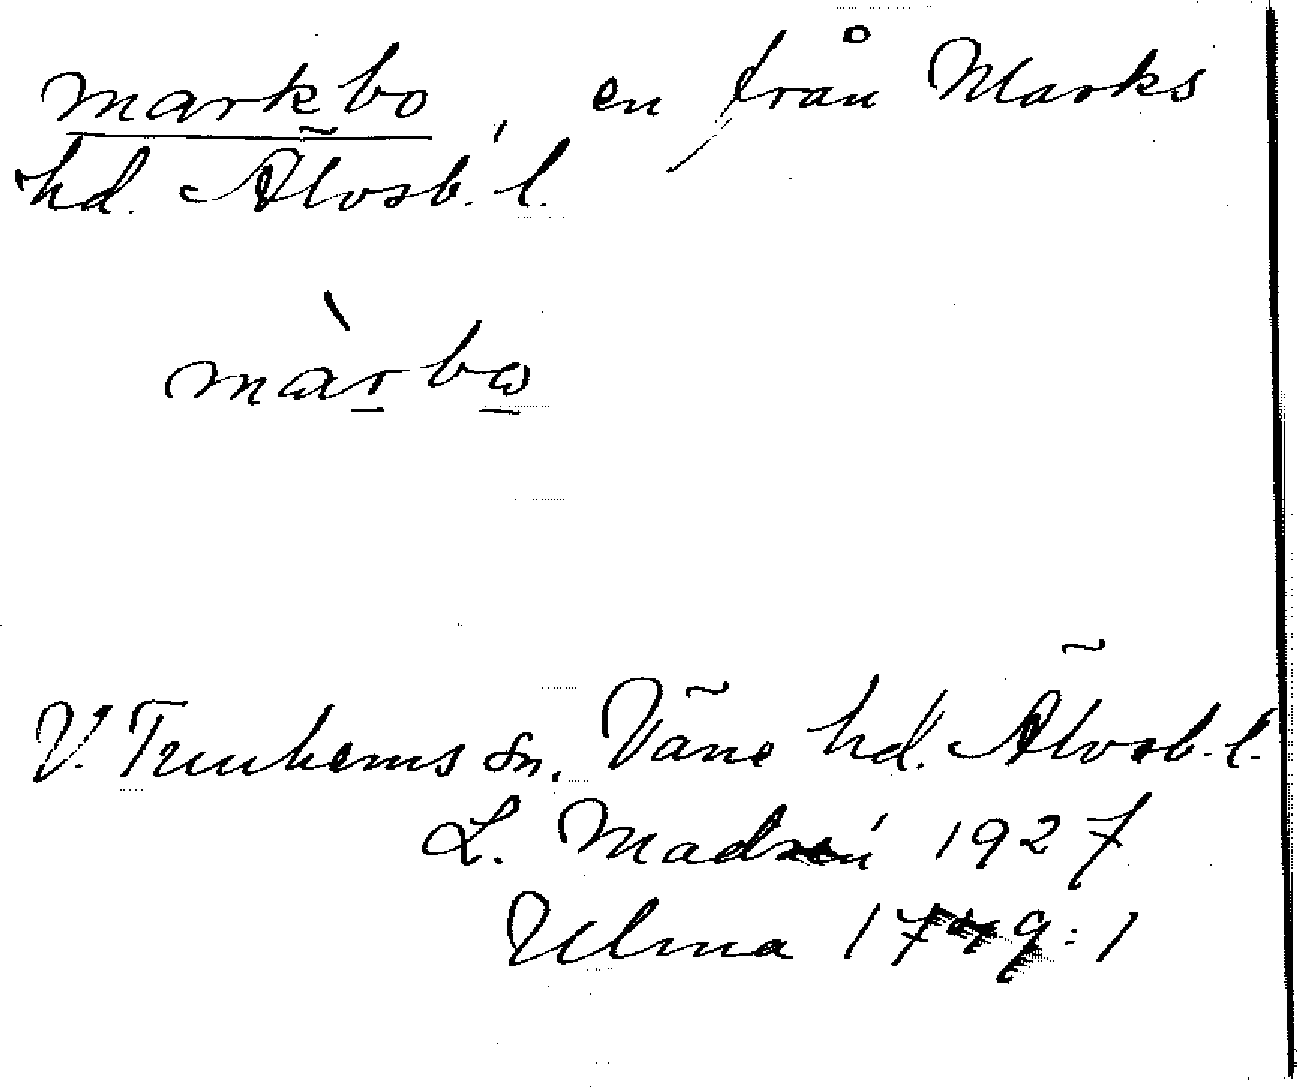 markbo, en från Marks
hd. Älvsb. l.
màrbo
V. Tunhems sn. Väne hd. Älvsb. l.
L. 1927
Ulma 1749:1